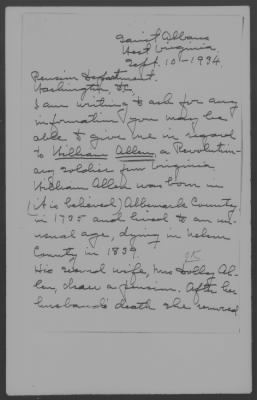 Saint Albans
West Virginia
Sept. 10 - 1934.
Pension Department.
Washington, D.C.
I am writing to ask for any
information you may be
able to give me in regard
to William Allen, a Revolution-
ary soldier from Virginia.
William Allen was born in
(it is believed) Albemarle County
in 1735 and lived to an un-
usual age, dying in Nelson
County in 1839.
His second wife, Mrs Dolley Al-
len, drew a pension. After her
husband's death she removed